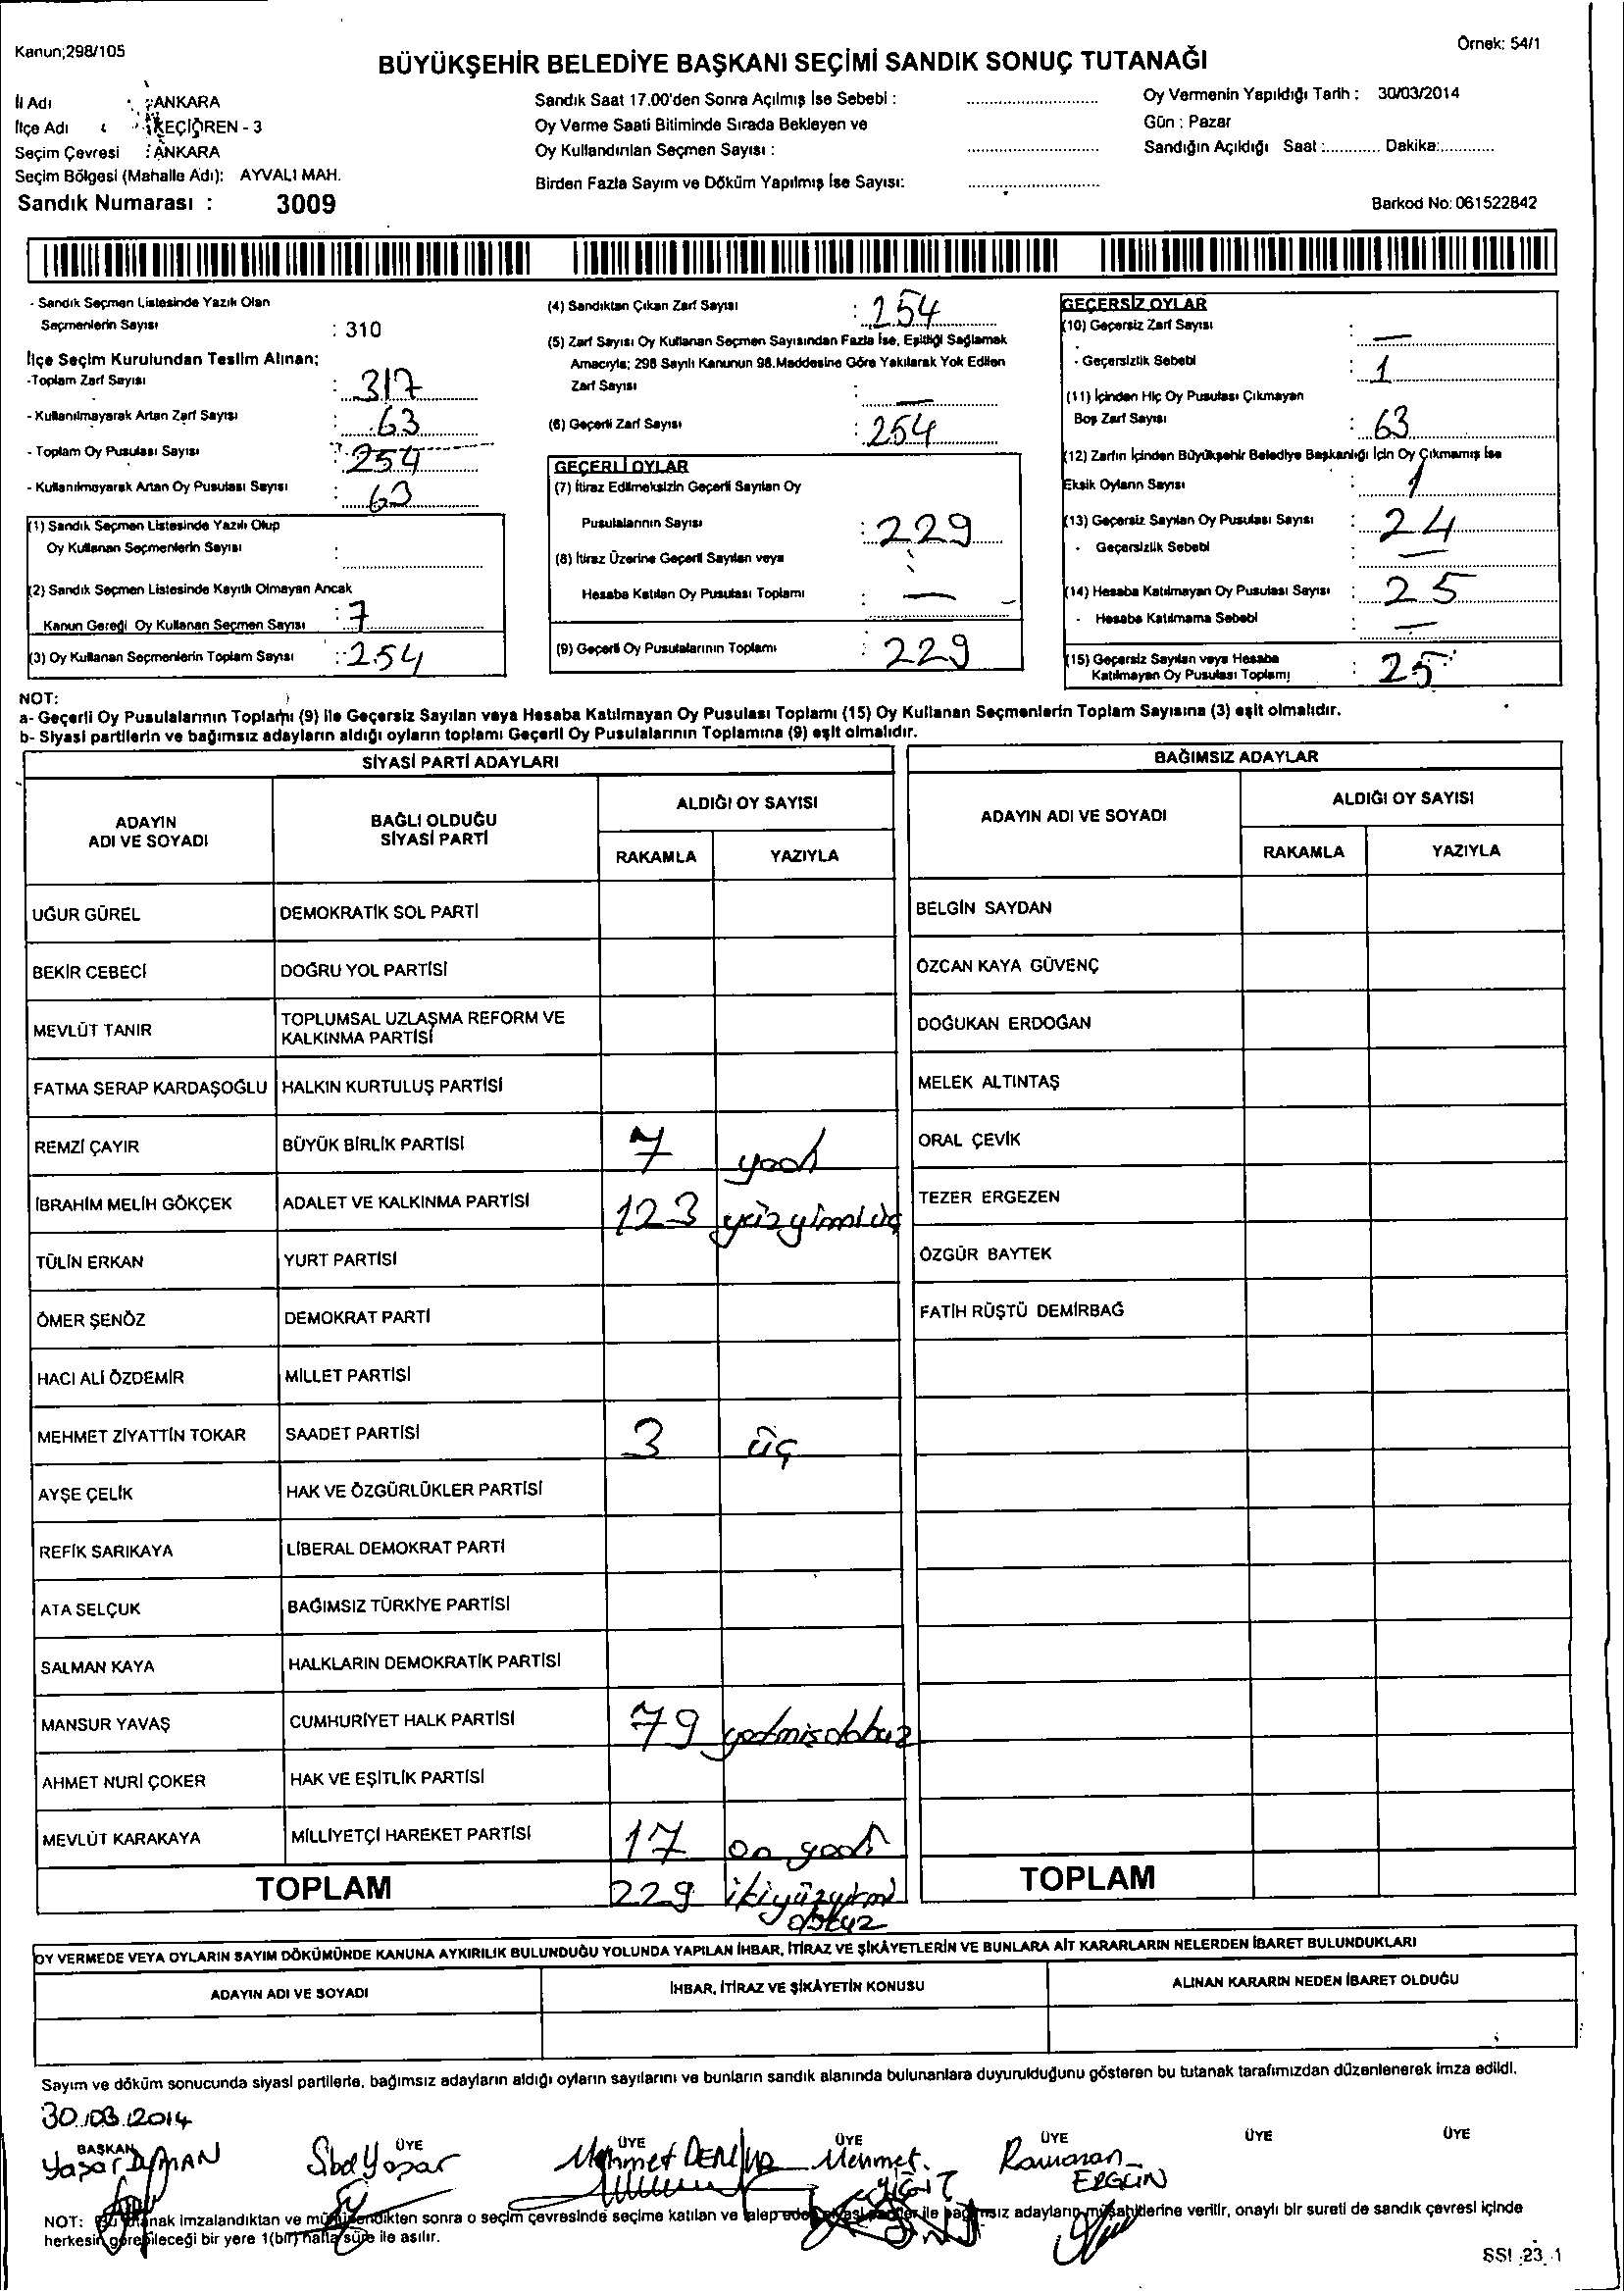 Kanun;298/105
Örnek: 54/1
BÜYÜKŞEHİR BELEDİYE BAŞKANI SEÇİMİ SANDIK SONUÇ TUTANAĞI
İl Adı : ANKARA
İlçe Adı : KEÇİÖREN - 3
Seçim Çevresi : ANKARA
Seçim Bölgesi (Mahalle Adı): AYVALI MAH.
Sandık Numarası : 3009
Sandık Saat 17.00'den Sonra Açılmış İse Sebebi :
Oy Verme Saati Bitiminde Sırada Bekleyen ve
Oy Kullandırılan Seçmen Sayısı :
Birden Fazla Sayım ve Döküm Yapılmış İse Sayısı:
Oy Vermenin Yapıldığı Tarih : 30/03/2014
Gün : Pazar
Sandığın Açıldığı Saat :............ Dakika:...........
Barkod No: 061522842
- Sandık Seçmen Listesinde Yazılı Olan
Seçmenlerin Sayısı : 310
İlçe Seçim Kurulundan Teslim Alınan;
-Toplam Zarf Sayısı : 317
- Kullanılmayarak Artan Zarf Sayısı : 63
- Toplam Oy Pusulası Sayısı : 254
- Kullanılmayarak Artan Oy Pusulası Sayısı : 63
(1) Sandık Seçmen Listesinde Yazılı Olup
Oy Kullanan Seçmenlerin Sayısı :
(2) Sandık Seçmen Listesinde Kayıtlı Olmayan Ancak
Kanun Gereği Oy Kullanan Seçmen Sayısı : 7
(3) Oy Kullanan Seçmenlerin Toplam Sayısı : 254
(4) Sandıktan Çıkan Zarf Sayısı : 254
(5) Zarf Sayısı Oy Kullanan Seçmen Sayısından Fazla İse, Eşitliği Sağlamak
Amacıyla; 298 Sayılı Kanunun 98.Maddesine Göre Yakılarak Yok Edilen
Zarf Sayısı : —
(6) Geçerli Zarf Sayısı : 254
GEÇERLİ OYLAR
(7) İtiraz Edilmeksizin Geçerli Sayılan Oy
Pusulalarının Sayısı : 229
(8) İtiraz Üzerine Geçerli Sayılan veya
Hesaba Katılan Oy Pusulası Toplamı : —
(9) Geçerli Oy Pusulalarının Toplamı : 229
GEÇERSİZ OYLAR
(10) Geçersiz Zarf Sayısı : —
- Geçersizlik Sebebi : 1
(11) İçinden Hiç Oy Pusulası Çıkmayan
Boş Zarf Sayısı : 63
(12) Zarfın İçinden Büyükşehir Belediye Başkanlığı İçin Oy Çıkmamış İse
Eksik Oyların Sayısı : 1
(13) Geçersiz Sayılan Oy Pusulası Sayısı : 24
- Geçersizlik Sebebi : —
(14) Hesaba Katılmayan Oy Pusulası Sayısı : 25
- Hesaba Katılmama Sebebi : —
(15) Geçersiz Sayılan veya Hesaba
Katılmayan Oy Pusulası Toplamı : 25
NOT:
a- Geçerli Oy Pusulalarının Toplamı (9) ile Geçersiz Sayılan veya Hesaba Katılmayan Oy Pusulası Toplamı (15) Oy Kullanan Seçmenlerin Toplam Sayısına (3) eşit olmalıdır.
b- Siyasi partilerin ve bağımsız adayların aldığı oyların toplamı Geçerli Oy Pusulalarının Toplamına (9) eşit olmalıdır.
SİYASİ PARTİ ADAYLARI
ADAYIN
ADI VE SOYADI
BAĞLI OLDUĞU
SİYASİ PARTİ
ALDIĞI OY SAYISI
RAKAMLA YAZIYLA
UĞUR GÜREL DEMOKRATİK SOL PARTİ
BEKİR CEBECİ DOĞRU YOL PARTİSİ
MEVLÜT TANIR TOPLUMSAL UZLAŞMA REFORM VE
KALKINMA PARTİSİ
FATMA SERAP KARDAŞOĞLU HALKIN KURTULUŞ PARTİSİ
REMZİ ÇAYIR BÜYÜK BİRLİK PARTİSİ 7 yedi
İBRAHİM MELİH GÖKÇEK ADALET VE KALKINMA PARTİSİ 123 yüzyimiüç
TÜLİN ERKAN YURT PARTİSİ
ÖMER ŞENÖZ DEMOKRAT PARTİ
HACI ALİ ÖZDEMİR MİLLET PARTİSİ
MEHMET ZİYATTİN TOKAR SAADET PARTİSİ 3 üç
AYŞE ÇELİK HAK VE ÖZGÜRLÜKLER PARTİSİ
REFİK SARIKAYA LİBERAL DEMOKRAT PARTİ
ATA SELÇUK BAĞIMSIZ TÜRKİYE PARTİSİ
SALMAN KAYA HALKLARIN DEMOKRATİK PARTİSİ
MANSUR YAVAŞ CUMHURİYET HALK PARTİSİ 79 yetmisdokuz
AHMET NURİ ÇOKER HAK VE EŞİTLİK PARTİSİ
MEVLÜT KARAKAYA MİLLİYETÇİ HAREKET PARTİSİ 17 on yedi
TOPLAM 229 ikiyüzyirmi
dokuz
BAĞIMSIZ ADAYLAR
ADAYIN ADI VE SOYADI
ALDIĞI OY SAYISI
RAKAMLA YAZIYLA
BELGİN SAYDAN
ÖZCAN KAYA GÜVENÇ
DOĞUKAN ERDOĞAN
MELEK ALTINTAŞ
ORAL ÇEVİK
TEZER ERGEZEN
ÖZGÜR BAYTEK
FATİH RÜŞTÜ DEMİRBAĞ
TOPLAM
OY VERMEDE VEYA OYLARIN SAYIM DÖKÜMÜNDE KANUNA AYKIRILIK BULUNDUĞU YOLUNDA YAPILAN İHBAR, İTİRAZ VE ŞİKÂYETLERİN VE BUNLARA AİT KARARLARIN NELERDEN İBARET BULUNDUKLARI
ADAYIN ADI VE SOYADI
İHBAR, İTİRAZ VE ŞİKÂYETİN KONUSU
ALINAN KARARIN NEDEN İBARET OLDUĞU
Sayım ve döküm sonucunda siyasi partilerle, bağımsız adayların aldığı oyların sayılarını ve bunların sandık alanında bulunanlara duyurulduğunu gösteren bu tutanak tarafımızdan düzenlenerek imza edildi.
30.03.2014
BAŞKAN ÜYE ÜYE ÜYE ÜYE ÜYE ÜYE
Yaşar Yaşar Mehmet Mehmet Ramazan
YİĞİT ERGÜN
NOT: Bu tutanak imzalandıktan ve mühürlendikten sonra o seçim çevresinde seçime katılan ve talep eden siyasi partiler ile bağımsız adayların müşahitlerine verilir, onaylı bir sureti de sandık çevresi içinde
herkesin görebileceği bir yere 1(bir) hafta süre ile asılır.
SSI 23 1